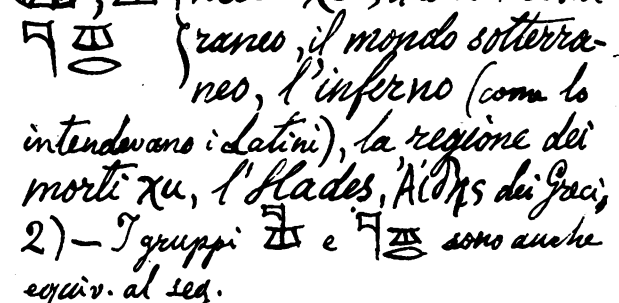 raneo, il mondo sotterra-
neo, l'inferno (come lo
intendevano i Latini), la regione dei
morti χu, l'Hades, Ἀίδης dei Greci,
2) — I gruppi e sono anche
equiv. al seg.